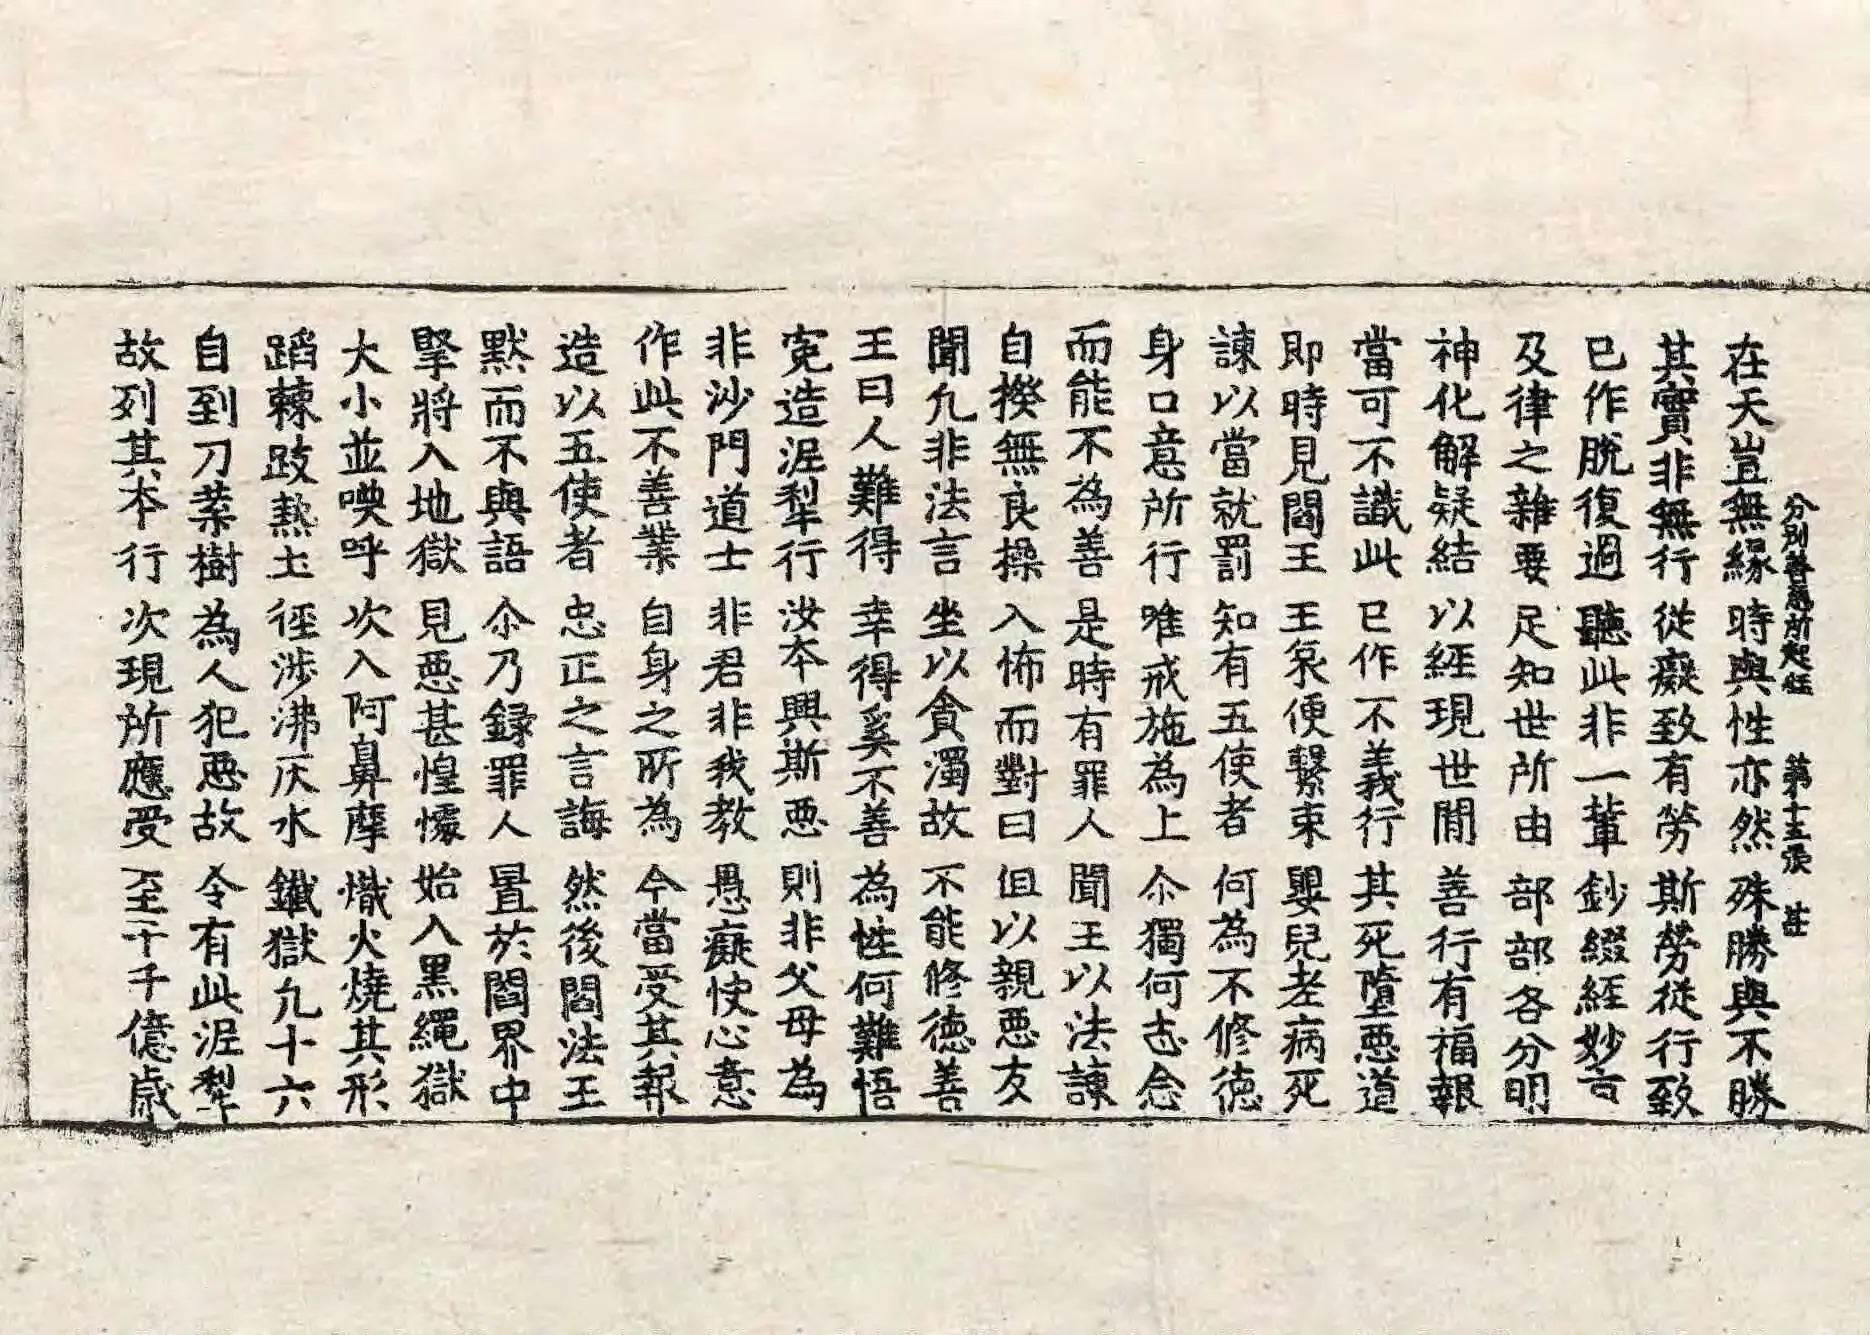 分別善惡所起経 第十五張 甚
在天豈無緣 時與性亦然 殊勝與不勝
其實非無行 從癡致有勞 斯勞從行致
已作脫復過 聽此非一輩 鈔綴経妙言
及律之雜要 足知世所由 部部各分明
神化解疑結 以経現世間 善行有福報
當可不識此 已作不義行 其死墮惡道
即時見閻王 王泉便繫束 嬰兒老病死
諫以當就罰 知有五使者 何為不修德
身口意所行 唯戒施為上 尒獨何志念
而能不為善 是時有罪人 聞王以法諫
自揆無良操 入怖而對曰 但以親惡友
聞九非法言 坐以貪濁故 不能修德善
王曰人難得 幸得奚不善 為性何難悟
寃造泥犁行 汝本興斯惡 則非父母為
非沙門道士 非君非我教 愚癡快心意
作此不善業 自身之所為 今當受其報
造以五使者 忠正之言誨 然後閻法王
默而不與語 尒乃録罪人 置於閻界中
掔將入地獄 見惡甚惶懅 始入黑繩獄
大小並㗛呼 次入阿鼻摩 熾火燒其形
蹈棘跂熱土 徑涉沸灰水 鐵獄九十六
自到刀葉樹 為人犯惡故 令有此泥犁
故列其本行 次現所應受 至十千億歲